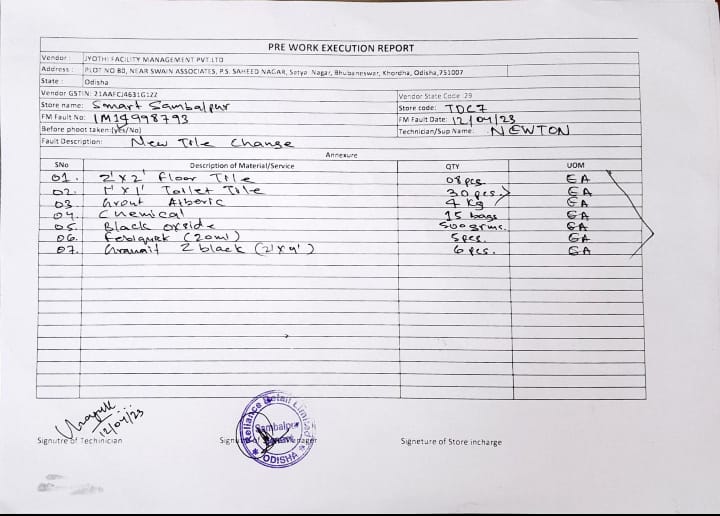 PRE WORK EXECUTION REPORT
Vendor : JYOTHI FACILITY MANAGEMENT PVT.LTD
Address : PLOT NO 80, NEAR SWAIN ASSOCIATES, P.S. SAHEED NAGAR, Satya Nagar, Bhubaneswar, Khordha, Odisha,751007
State : Odisha
Vendor GSTIN: 21AAFCJ4631G1ZZ Vendor State Code: 29
Store name: Smart Sambalpur Store code: TDC7
FM Fault No: IM14998793 FM Fault Date: 12/04/23
Before phoot taken:(yes/No) Technician/Sup Name: NEWTON
Fault Description: New Tile Change
Annexure
SNo Description of Material/Service QTY UOM
01. 2'x2' Floor Tile 08 pcs. EA
02. 1'x1' Toilet Tile 30 pcs. EA
03 Grout 4 kg EA
04. Chemical 15 bags EA
05. Black oxside 500 grms. EA
06. Febiquek (20ml) 5 pcs. EA
07. Granait Z black (2'x4') 6 pcs. EA
12/04/23
Reliance Retail Limited
Sambalpur
* ODISHA *
Signutre of Techinician Signeture of Store incharge